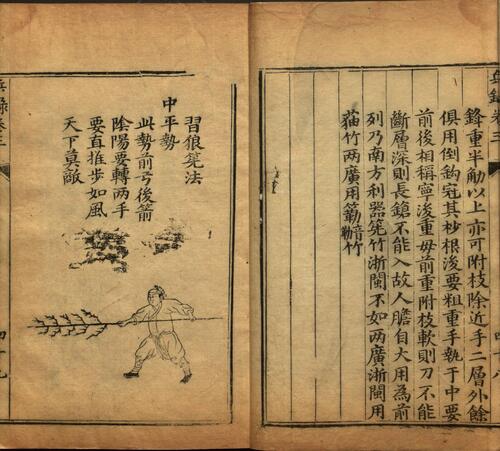 鋒重半觔以上亦可附枝除近手二層外餘
俱用倒鈎宄其杪根浚要粗重手執于中要
前後相稱寧浚重毋前重附枝軟則刀不能
斷層深則長鎗不能入故人膽自大用為前
列乃南方利器筅竹浙閩不如两廣浙閩用
猫竹两廣用簕音勒竹
習狼筅法
中平勢
此勢前弓後箭
陰陽要轉两手
要直推步如風
天下莫敵
兵錄卷三
四十九